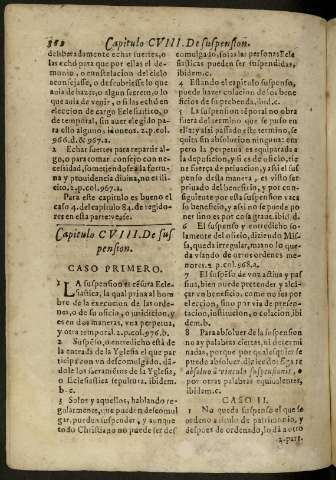 382
Capitulo CVIII. De suspension.
deliberadamente echar suertes, o
las echó para que por ellas el de-
monio, o constelacion del cielo
aconsejasse, o descubriesse lo que
auia de hazer, o algun secreto, o lo
que auia de venir, o si las echó en
eleccion de cargo Eclesiastico, o
de temporal, sin auer elegido pa-
ra esto algunos idoneos. 2.p.col.
966.d.& 967.a.
2 Echar suertes para repartir al-
go, o para tomar consejo con ne-
cessidad, sometiendose a la fortu-
na y prouidencia diuina, no es ili-
cito. 2.p.col.967.a.
Para este capitulo es bueno el
caso 4. del capitulo 84. de regido-
res en esta parte: vease.
Capitulo CVIII. De sus
pension.
CASO PRIMERO.
1 LA suspension es cēsura Ecle-
siastica, la qual priua al hom
bre de la execucion de las orde-
nes, o de su oficio, o juridicion, y
es en dos maneras, vna perpetua,
y otra temporal. 2.p.col.976.b.
2 Suspēso, o entredicho está de
la entrada de la Yglesia el que par
ticipó con vn descomulgado, dā-
dole los sacramētos de la Yglesia,
o Eclesiastica sepultura. ibidem.
b.c.
3 Solos y aquellos, hablando re-
gularmente, que pueden descomul
gar, pueden suspender, y aunque
todo Christiano no puede ser des
comulgado, solas las personas Ecle
siasticas pueden ser suspendidas,
ibidem.c.
4 Estando el capitulo suspenso,
puede hazer colacion de los bene
ficios de su prebenda, ibid.c.
5 La suspension tēporal no obra
fuera del termino que se puso en
ella: y assi passado este termino, se
quita sin absolucion ninguna: em
pero la perpetua es equiparada a
la deposicion, y si es de oficio, tie-
ne fuerça de priuacion, y si es de
beneficio, assi mesmo, y es visto ser
priuado del beneficio, y por con-
siguiente por esta suspension vaca
su beneficio, y assi no se puede po
ner sino es por cosa graue. ibid.d.
6 El suspenso y entredicho sola-
mente del oficio, diziendo Mis-
sa, queda irregular, mas no lo que-
da vsando de otros ordenes meno-
res. 2.p.col.968.a.
7 El suspēso de voz actiua y pas
siua, bien puede pretender y alcan
çar vn beneficio, como no sea por
eleccion, sino por via de presen-
tacion, institucion, o colacion, ibi
dem.b.
8 Para absoluer de la suspension
no ay palabras ciertas, ni determi
nadas, porque por qualesquier se
puede absoluer, diziendo: Ego te
absoluo à vinculo suspensionis, o
por otras palabras equiualentes,
ibidem.c.
CASO II.
1 No queda suspenso el que se
ordenó a titulo de patrimonio, y
despues de ordenado, lo dá a otro
2.part.